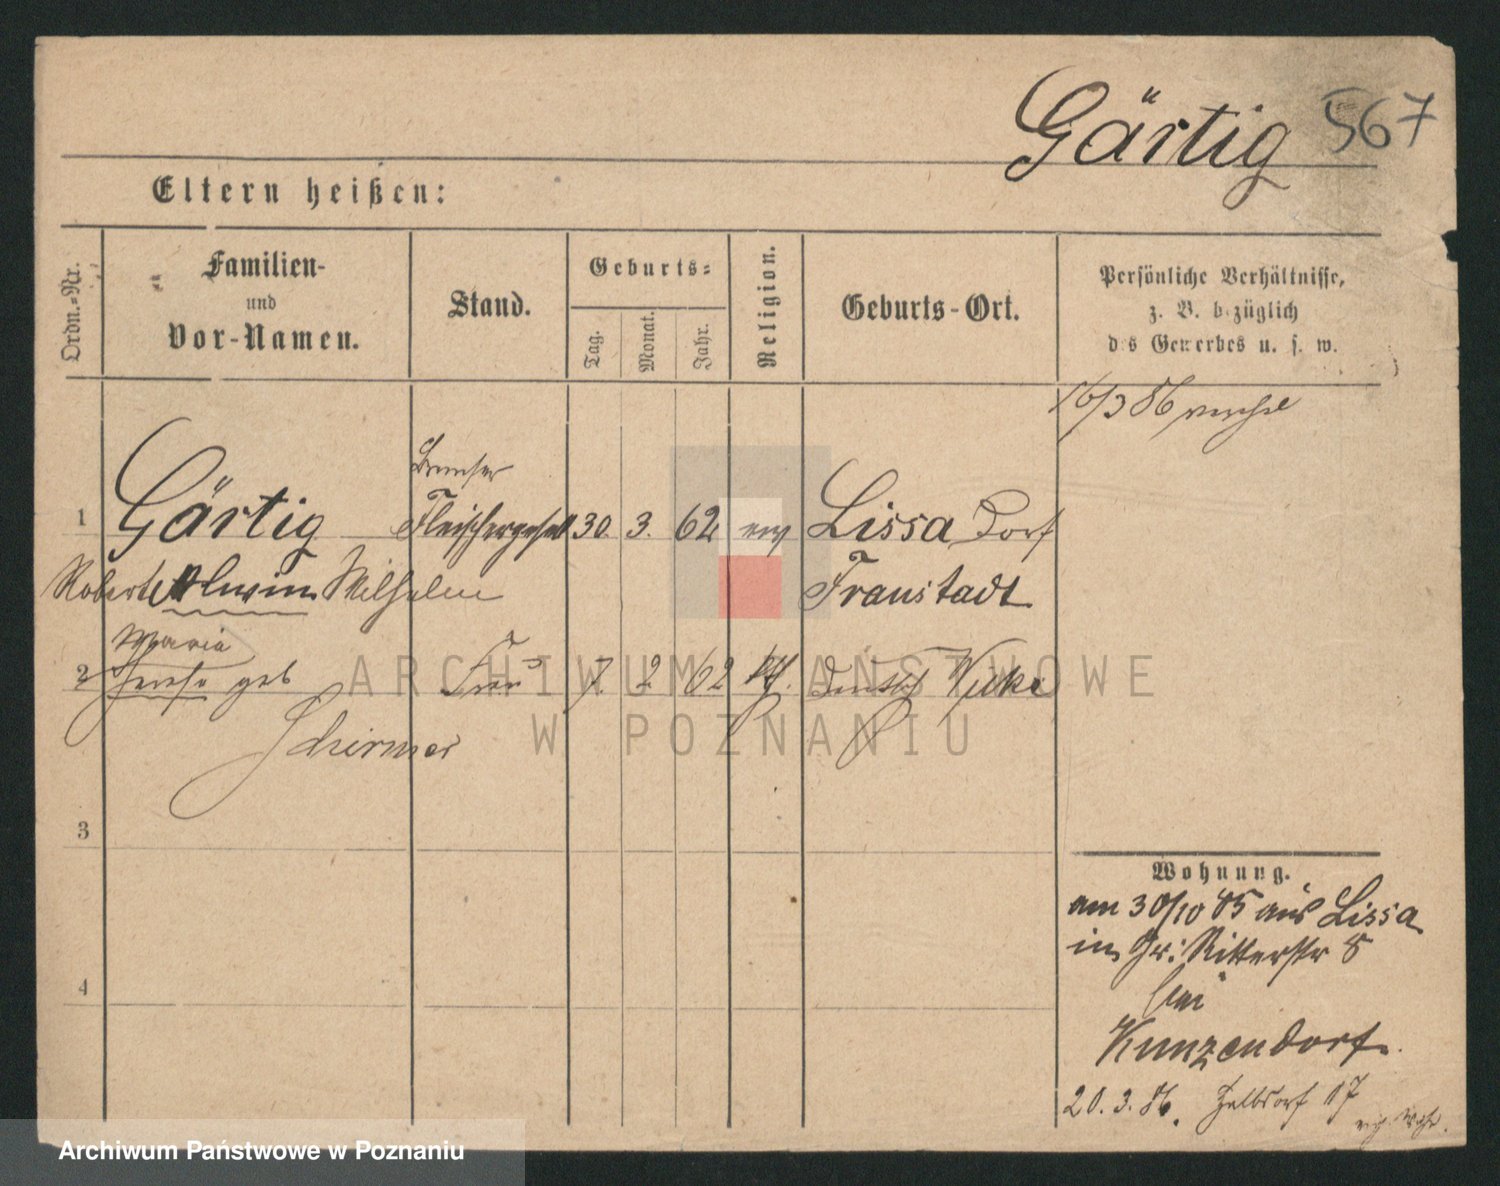 Gärtig 567
Eltern heißen:
Ordn.-Nr.
Familien-
und
Vor-Namen.
Stand.
Geburts-
Tag.
Monat.
Jahr.
Religion.
Geburts-Ort.
Persönliche Verhältnisse,
z. B. bezüglich
des Gewerbes u. s. w.
16/3 86
1 Gärtig Fleischergesell 30. 3. 62 ev Lissa Dorf
Robert Alwin Wilhelm Fraustadt
Maria
2 geb Frau 7. 2 62 Deutsch Wilke
Schirmer
3
4
Wohnung.
am 30/10 85 aus Lissa
in Gr: Ritterstr 8
bei
Kunzendorf.
20. 3. 86. Halbdorf 17
ARCHIWUM PAŃSTWOWE
W POZNANIU
Archiwum Państwowe w Poznaniu